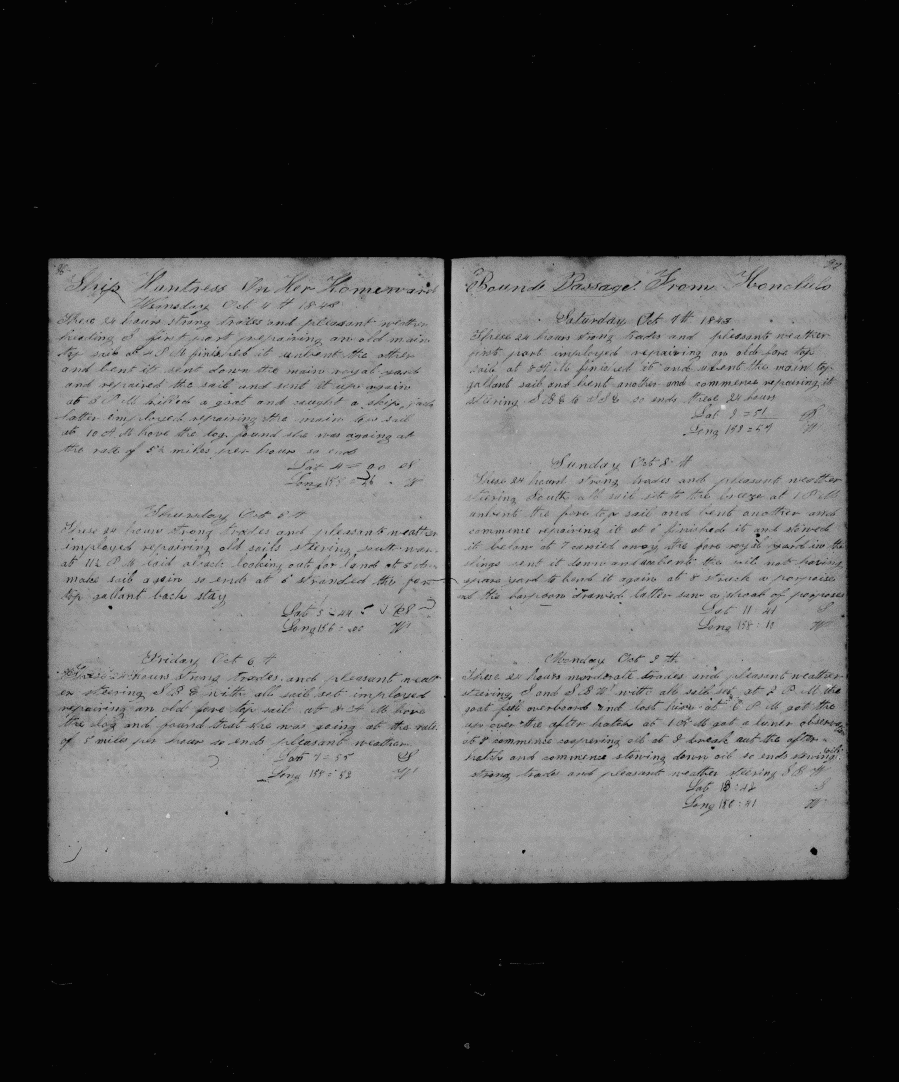 96
Ship Huntress On Her Homeward
Wensday Oct 4th 1848
These 24 hours strong trades and pleasant weather
heading S first part prepairing an old main
top sail at 4 P M finished it unbent the other
and bent it sent down the main royal yard
and repaired the sail and sent it up again
at 5 P M killed a goat and caught a skip jack
latter employed repairing the main top sail
at 10 A M hove the log found she was agoing at
the rate of 8½ miles per hour so ends
Lat 4 = 00 S
Long 155 = 26 W
Thursday Oct 5th
These 24 hours strong trades and pleasant weather
imployed repairing old sails steering south war
at 11½ P M laid aback looking out for land at 5 A M
make sail again so ends at 6 stranded the fore
top gallant back stay
Lat 5 = 44 S
Long 156 = 20 W
Friday Oct 6th
These 24 hours strong trades and pleasant weath
er steering S B E with all sail set imployed
repairing an old fore top sail at 8 A M hove
the log and found that she was going at the rate
of 8 miles per hour so ends pleasant weather
Lat 7 = 55 S
Long 158 = 52 W
97
Bound Passage From Honolulu
Saturday Oct 7th 1848
These 24 hours strong trades and pleasant weather
first part imployed repairing an old fore top
sail at 8 A M finished it and unbent the main top
gallant sail and bent another and commence repairing it
steering S B E to S S E so ends these 24 hours
Lat 9 = 51 S
Long 158 = 57 W
Sunday Oct 8th
These 24 hours strong trades and pleasant weather
steering South all sail set to the breeze at 1 P M
unbent the fore top sail and bent another and
commence repairing it at 6 finished it and stowed
it below at 7 carried away the fore royal yard in the
slings sent it down and unbent the sail not having
spare yard to bend it again at 8 struck a porpoise
as the harpoon drawed latter saw a shoal of porpoises
Lat 11 = 41 S
Long 158 = 10 W
Monday Oct 9th
These 24 hours moderate trades and pleasant weather
steering S and S B W with all sail set at 2 P M the
goat fell overboard and lost him at 6 P M got the
up over the after hatch at 1 A M got a luner observation
at 8 commence coopering oil at 9 break out the after
hatch and commence stowing down oil so ends stowing oil
strong trade and pleasant weather steering S B W
Lat 13 = 48 S
Long 150 = 41 W